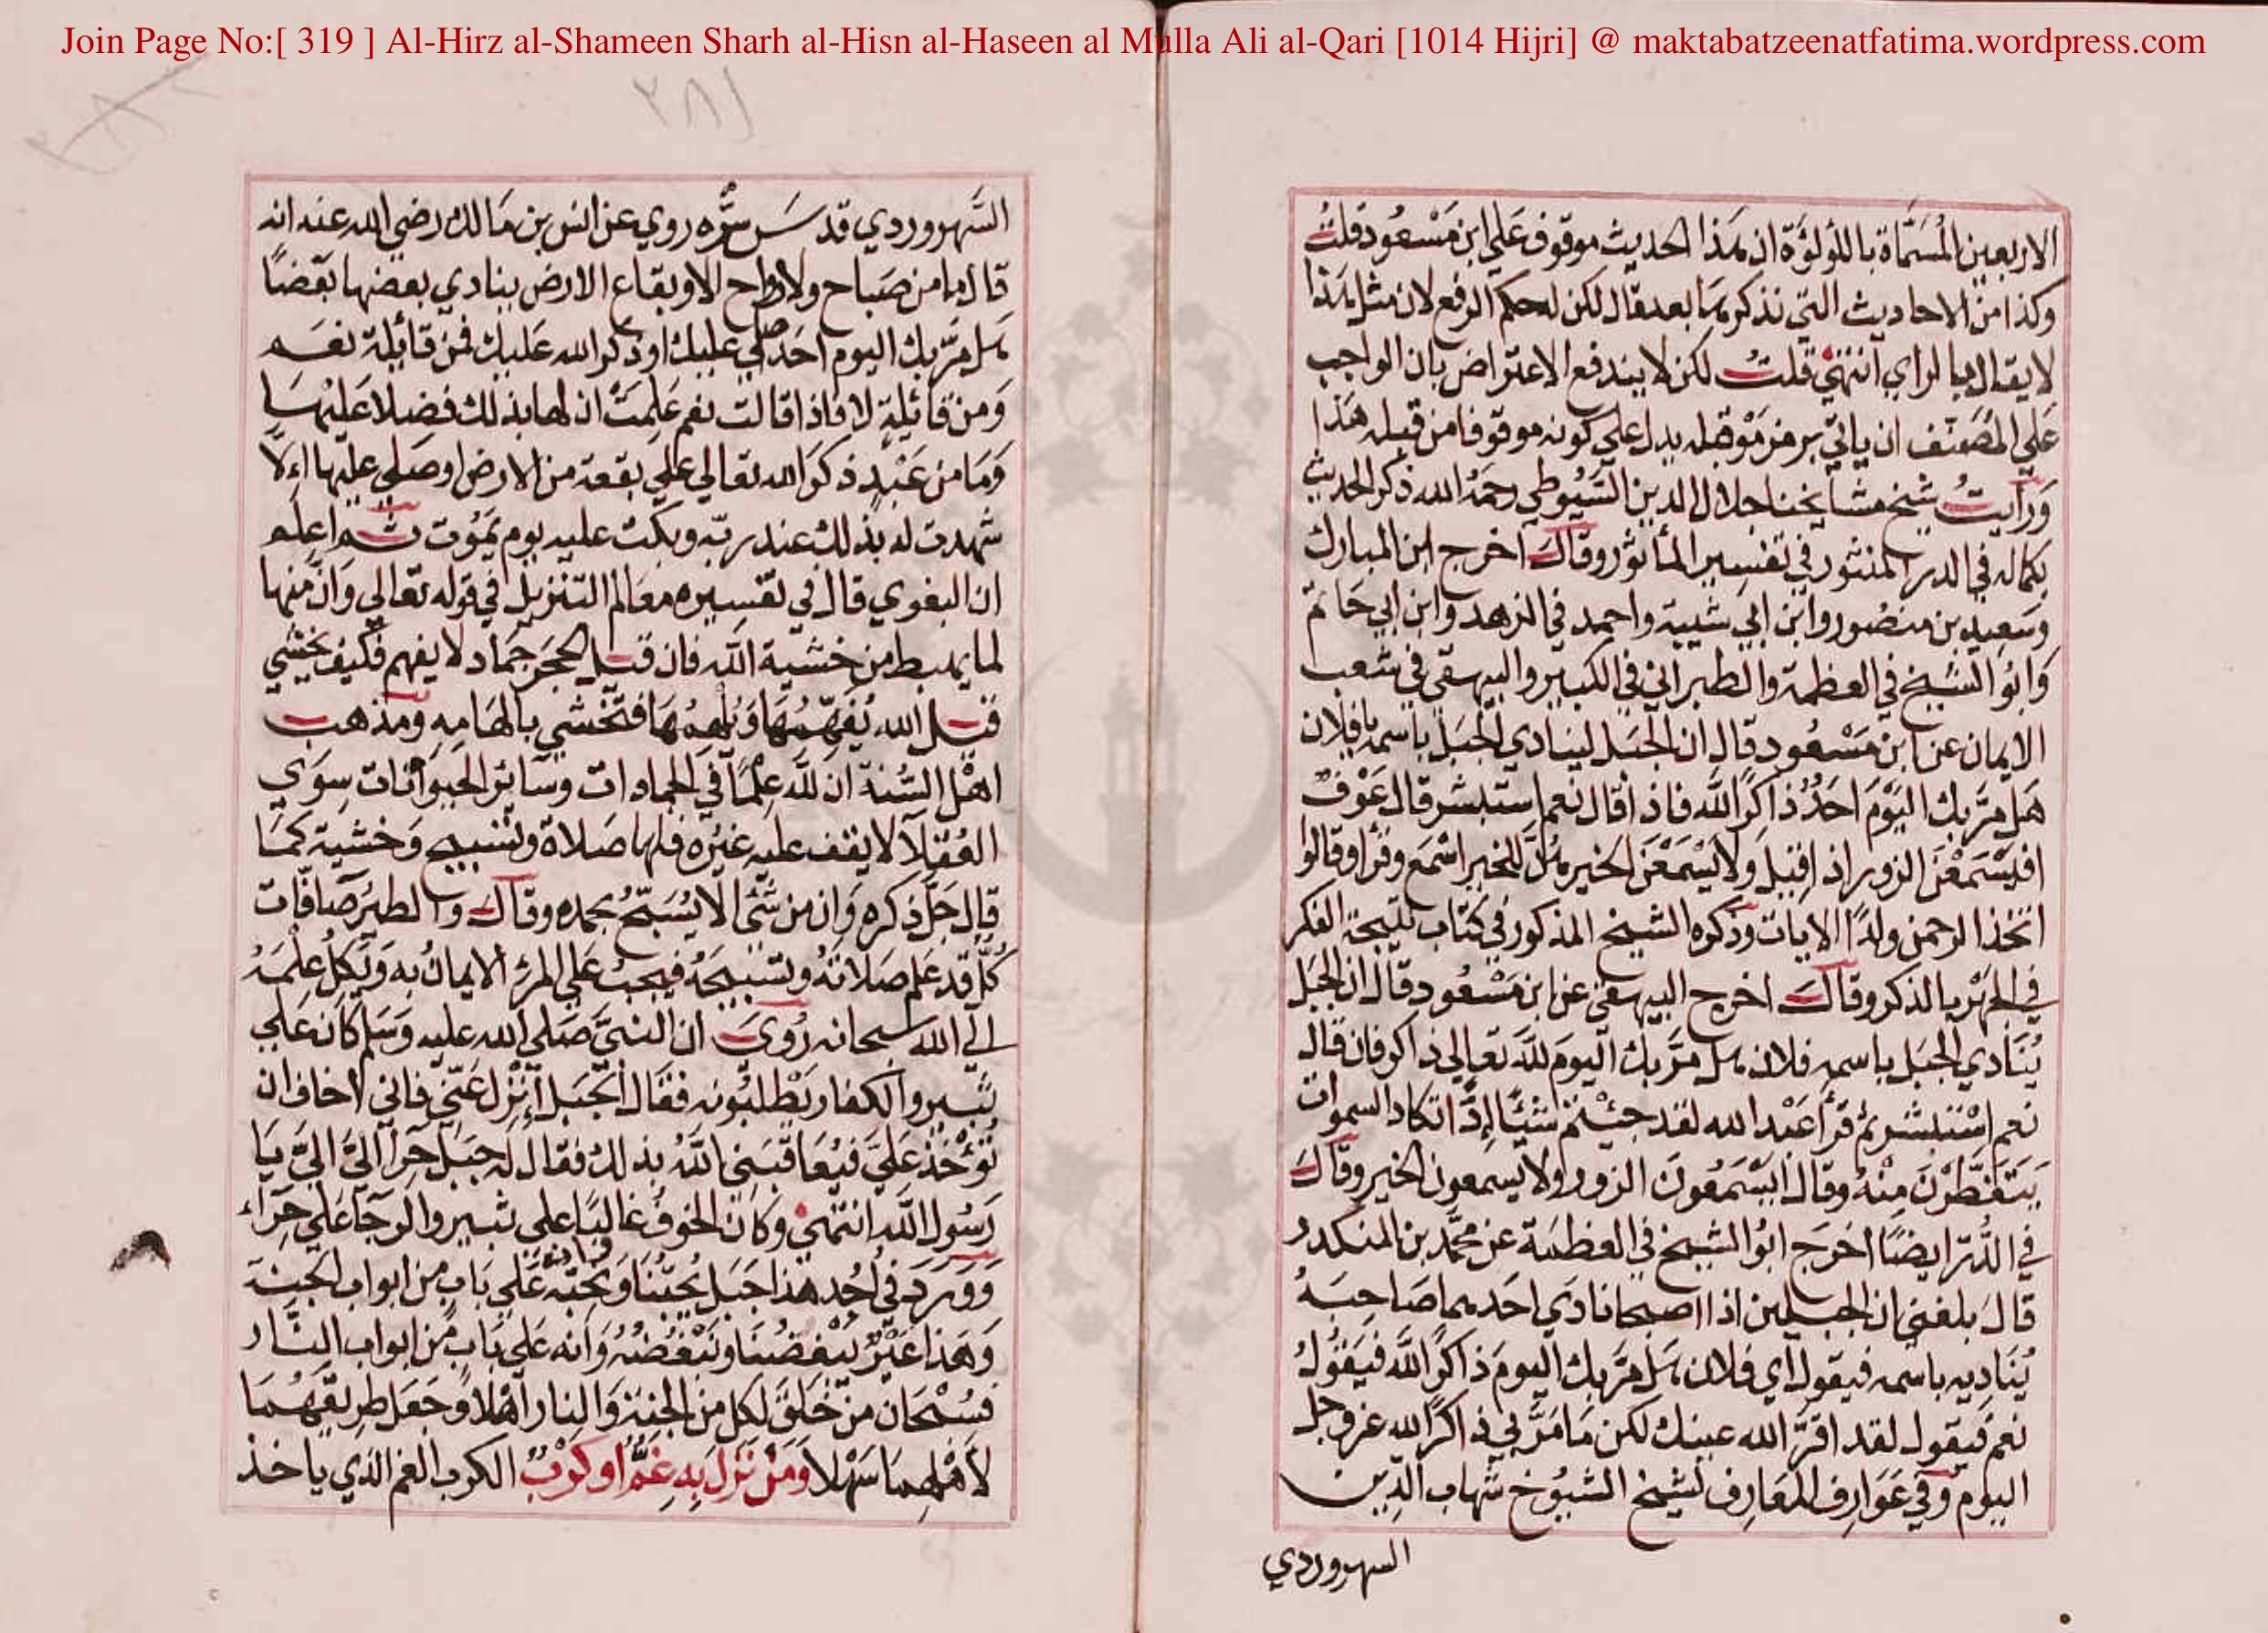 Join Page No:[ 319 ] Al-Hirz al-Shameen Sharh al-Hisn al-Haseen al Mulla Ali al-Qari [1014 Hijri] @ maktabatzeenatfatima.wordpress.com
٣٨١
الاربعين المُسَمَّاة باللؤلؤة ان هَذا الحديث موقوف عَلي ابن مَسْعُود قلتُ
وكذا من الاحاديث التي نذكرها بعد قال لكن له حكم الرفع لان مثل هَذا
لا يقال بالراي انتهي قلتُ لكن لا يندفع الاعتراض بان الواجب
عَلي المُصَنف ان ياتي برمز مَوْ قبله يدل علي كونه موقوفا من قبله هَذا
وَرَأيتُ شيخ مشايخنا جلال الدين السُّيُوطي رحمَهُ الله ذكر الحديث
بكماله في الدر المنثور في تفسير المأثور وقالَ اخرج ابن المبارك
وسَعِيد بن منصُور وابن ابي شيبة واحمد في الزهد وابن ابي حَاتم
وَابوُ الشيخ في العظمة والطبراني في الكبير والبيهقي في شعب
الايمان عن ابن مَسْعُود قال ان الجَبَل لينادي الجَبَل باسمه يا فلان
هَل مَرَّ بك اليَوْمَ احَدٌ ذاكرًا لله فاذا قال نعم استبشر قال عَوْف
افيَسْمَعْنَ الزور اذا قيل وَلا يَسْمَعْنَ الخير هُنَّ للخير اسْمَع وقرأ وقالوا
اتخذ الرحمن ولدًا الايات وذكره الشيخ المذكور في كتاب نتيجة الفكر
في الجَهْر بالذكر وقالَ اخرج البيهقي عن ابن مَسْعُود قال ان الجَبَل
يُنَادي الجبَل باسمه فلان هل مَرَّ بك اليَومَ لله تعالي ذاكر فان قال
نعم اسْتبشر ثم قرأ عَبْد الله لقد جئتم شيئًا إدًّا تكاد السموات
يَتَفَطَّرْنَ مِنْهُ وقال ايَسْمَعُونَ الزور ولا يسمعون الخير وقالَ
في الدُّر ايضًا اخرَجَ ابوُ الشيخ في العَظمَة عن محمَّد بن المنكدر
قالَ بلغني ان الجبلين اذا اصبحا نادَي احَدهما صَاحِبَهُ
يُنَادِيه باسمه فيقول أي فلان هَل مَرَّ بك اليومَ ذاكرًا لله فيَقُولُ
نعم فيقول لقد اقرَّ الله عينك لكن مَا مَرَّ بي ذاكرًا لله عز وجل
اليوم وفي عَوَارِف المعَارِف لشيخ الشيُوخ شهاب الدِّين
السهروردي
السَّهروردي قدسَ سرَّه روي عن انس بن مَالك رضي الله عنه انه
قال ما من صَبَاح ولا رواح الا وبقاع الارض ينادي بعضها بَعْضًا
هل مَرَّ بك اليوم احَد صلي عليك او ذكر الله عَليك فمن قائلة نعَم
وَمن قائلةٍ لا فاذا قالت نعم عَلِمَتْ ان لها بذلك فضلا عَليْهَا
وَمَا من عَبْدٍ ذكرَ الله تعالي علي بقعة من الارض او صَلي عليها إلا
شهدت له بذلك عند ربه وبكت عليه يوم يَمُوت ثم اعلم
ان البغوي قال في تفسيره معَالم التنزيل في قوله تعَالي وَانّ منها
لما يهبط من خشية الله فان قيل الحجَر جَمَاد لا يفهم فكيف يَخْشي
قيل الله يُفَهِّمُهَا وَيُلْهِمُهَا فتَخْشي بالهَامِه ومذهب
اهْل السُّنة ان لله عِلْمًا في الجمادات وسَائر الحَيَوَانات سِوَي
العُقلاَ لا يقف عليه غيْره فلها صَلاة وتسْبيح وَخشية كما
قال جَلَّ ذكره وَان من شَئ الا يُسَبِّحُ بحمده وقالَ والطيْر صَافَّات
كُلّ قد عَلم صَلاتهُ وتسْبيحَهُ فيجبُ عَلي المرْءِ الايمانُ به وَيَكِلُ عِلْمَهُ
الي الله سبحانه رُويَ ان النبيَّ صَلي الله عليه وَسَلم كَانَ عَلي
ثَبير والكفار يَطْلبُونه فقال الجَبَل انْزِل عَنِّي فاني اخاف ان
تُؤْخذ عَليَّ فيُعَاقبَني اللهُ بذلك فقال له جَبَل حِرَا اليَّ اليَّ يَا
رَسُول الله انتهي وكَانَ الخوفُ غالبًا علي ثبير والرجَا عَلي حِرَاء
وَوَرَدَ في اُحُد هذا جَبَل يُحِبُّنَا وَنحِبُّه وانه عَلي بَاب من ابواب الجنة
وَهَذا عَيْرٌ يَبْغضُنَا ونَبْغُضُهُ وَانه عَلي بَاب من ابواب النَّار
فسُبْحَان مَنْ خَلقَ لِكل من الجنة وَالنار اهْلا وَجَعَل طريقَهُمَا
لأهْلِهِمَا سَهْلا وَمَنْ نَزَلَ بِهِ غمٌّ او كَرْبٌ الكرب الغم الذي ياخذ